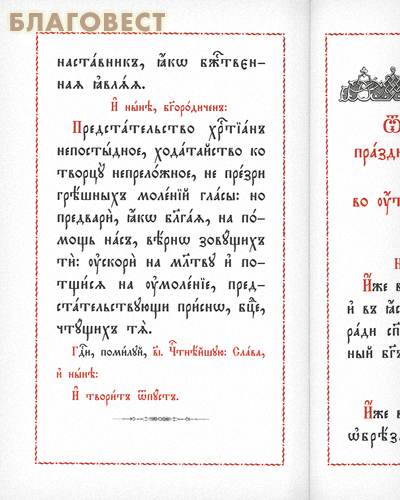 БЛАГОВЕСТ
наста́вникъ, ꙗ҆́кѡ бж҃твен-
ная ꙗ҆влѧ́ѧ.
И҆ ны́нѣ, бг҃оро́диченъ:
Предста́тельство хр҃тїа́нъ
непосты́дное, хода́тайство ко
творцꙋ̀ непрело́жное, не пре́зри
грѣ́шныхъ моле́нїй гла́сы: но
предварѝ, ꙗ҆́кѡ бл҃га́ѧ, на по́-
мощь на́съ, вѣ́рнѡ зовꙋ́щихъ
тѝ: ᲂу҆скорѝ на мл҃твꙋ и҆ по-
тщи́сѧ на ᲂу҆моле́нїе, пред-
ста́тельствꙋющи при́снѡ, бц҃е,
чтꙋ́щихъ тѧ̀.
Гд҃и, поми́лꙋй, в҃і. Чт҃нѣ́йшꙋю: Сла́ва,
и҆ ны́нѣ:
И҆ твори́тъ ѿпꙋ́стъ.
Ѿ
пра́здн
во ᲂу҆́т
И҆́же в
и҆ въ ꙗ҆с
ра́ди сп
ный бг҃ъ
И҆́же в
ѡ҆брѣ́з